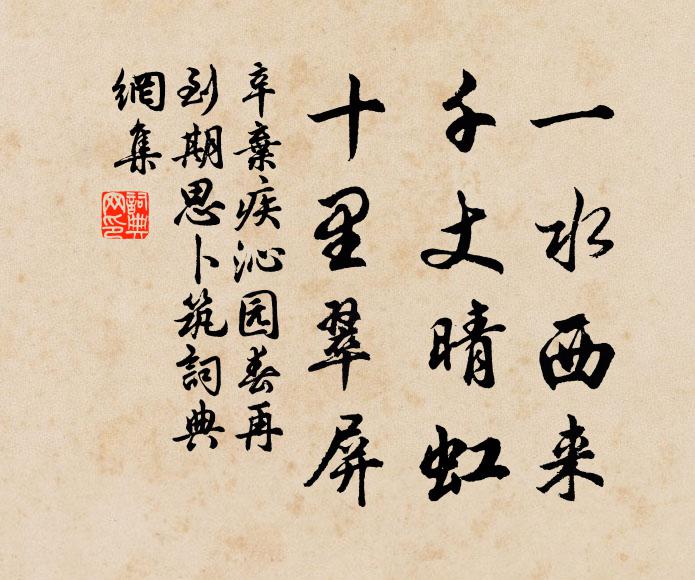 一水西来
千丈晴虹
十里翠屏
辛棄疾沁园春再
到期思卜筑詞典
網集
詞典
网印